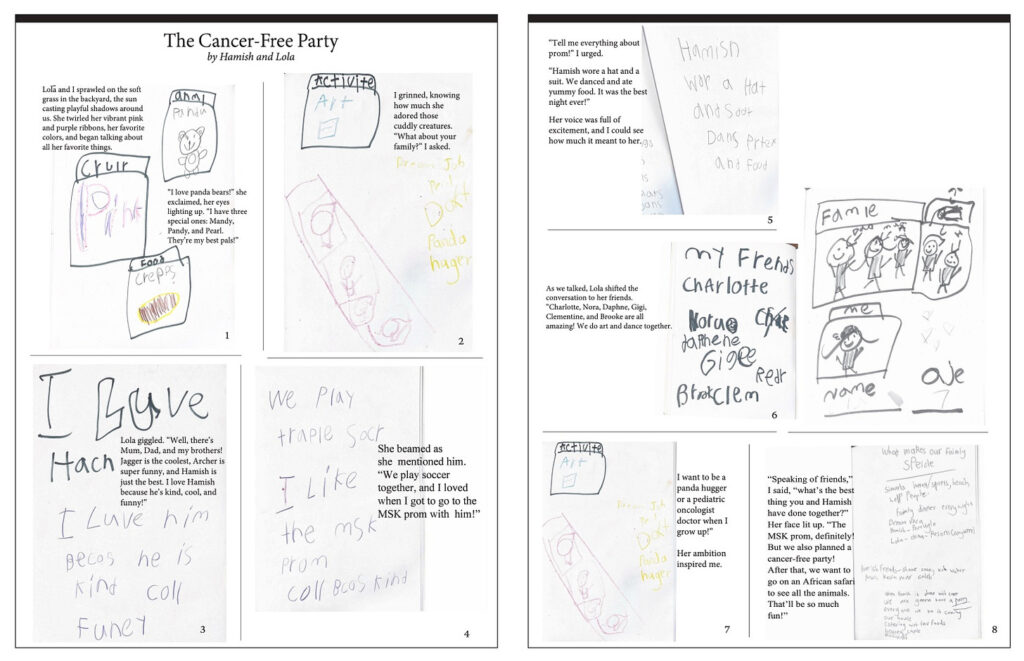 The Cancer-Free Party
by Hamish and Lola
Lola and I sprawled on the soft
grass in the backyard, the sun
casting playful shadows around
us. She twirled her vibrant pink
and purple ribbons, her favorite
colors, and began talking about
all her favorite things.
anml
Panda
Crulr
Pink
"I love panda bears!" she
exclaimed, her eyes
lighting up. "I have three
special ones: Mandy,
Pandy, and Pearl.
They're my best pals!"
Food
Crepps
1
Activite
Art
I grinned, knowing
how much she
adored those
cuddly creatures.
"What about your
family?" I asked.
Dream Job
Doct
Panda
huger
2
I Luve
Hach
Lola giggled. "Well, there's
Mum, Dad, and my brothers!
Jagger is the coolest, Archer is
super funny, and Hamish is
just the best. I love Hamish
because he's kind, cool, and
funny!"
I Luve him
Becos he is
Kind Coll
Funey
3
We Play
traple Socr
I Like
the msk
prom
Coll Bcos Kind
She beamed as
she mentioned him.
"We play soccer
together, and I loved
when I got to go to the
MSK prom with him!"
4
"Tell me everything about
prom!" I urged.
"Hamish wore a hat and a
suit. We danced and ate
yummy food. It was the best
night ever!"
Her voice was full of
excitement, and I could see
how much it meant to her.
Hamish
Wor a Hat
and Soot
Dans
and Food
5
As we talked, Lola shifted the
conversation to her friends.
"Charlotte, Nora, Daphne, Gigi,
Clementine, and Brooke are all
amazing! We do art and dance together.
my Frends
Charlotte
Nora
daphene
Gigee
Brook Clem
6
Famle
me
Name
Age
7
Activite
Art
Dream Job
Doct
Panda
huger
I want to be a
panda hugger
or a pediatric
oncologist
doctor when I
grow up!"
Her ambition
inspired me.
7
"Speaking of friends,"
I said, "what's the best
thing you and Hamish
have done together?"
Her face lit up. "The
MSK prom, definitely!
But we also planned a
cancer-free party!
After that, we want to
go on an African safari
to see all the animals.
That'll be so much
fun!"
What makes our family
Speicle
family dinner every night
8